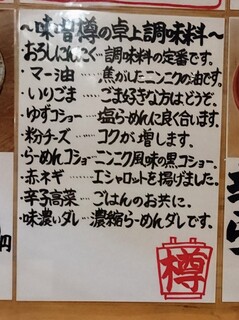 ～味噌樽の卓上調味料～
おろしにんにく…調味料の定番です。
・マー油……焦がしたニンニクの油です。
・いりごま……ごま好きな方はどうぞ。
・ゆずコショー…塩らめんに良く合います。
・粉チーズ……コクが増します。
・らーめんコショーニンニク風味の黒コショー。
・赤ネギ……エシャロットを揚げました。
・辛子高菜……ごはんのお共に。
・味濃いダレ…濃縮らーめんダレです。
樽
円